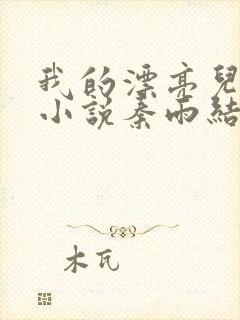 我的漂亮兒
小說秦雨結
木瓦